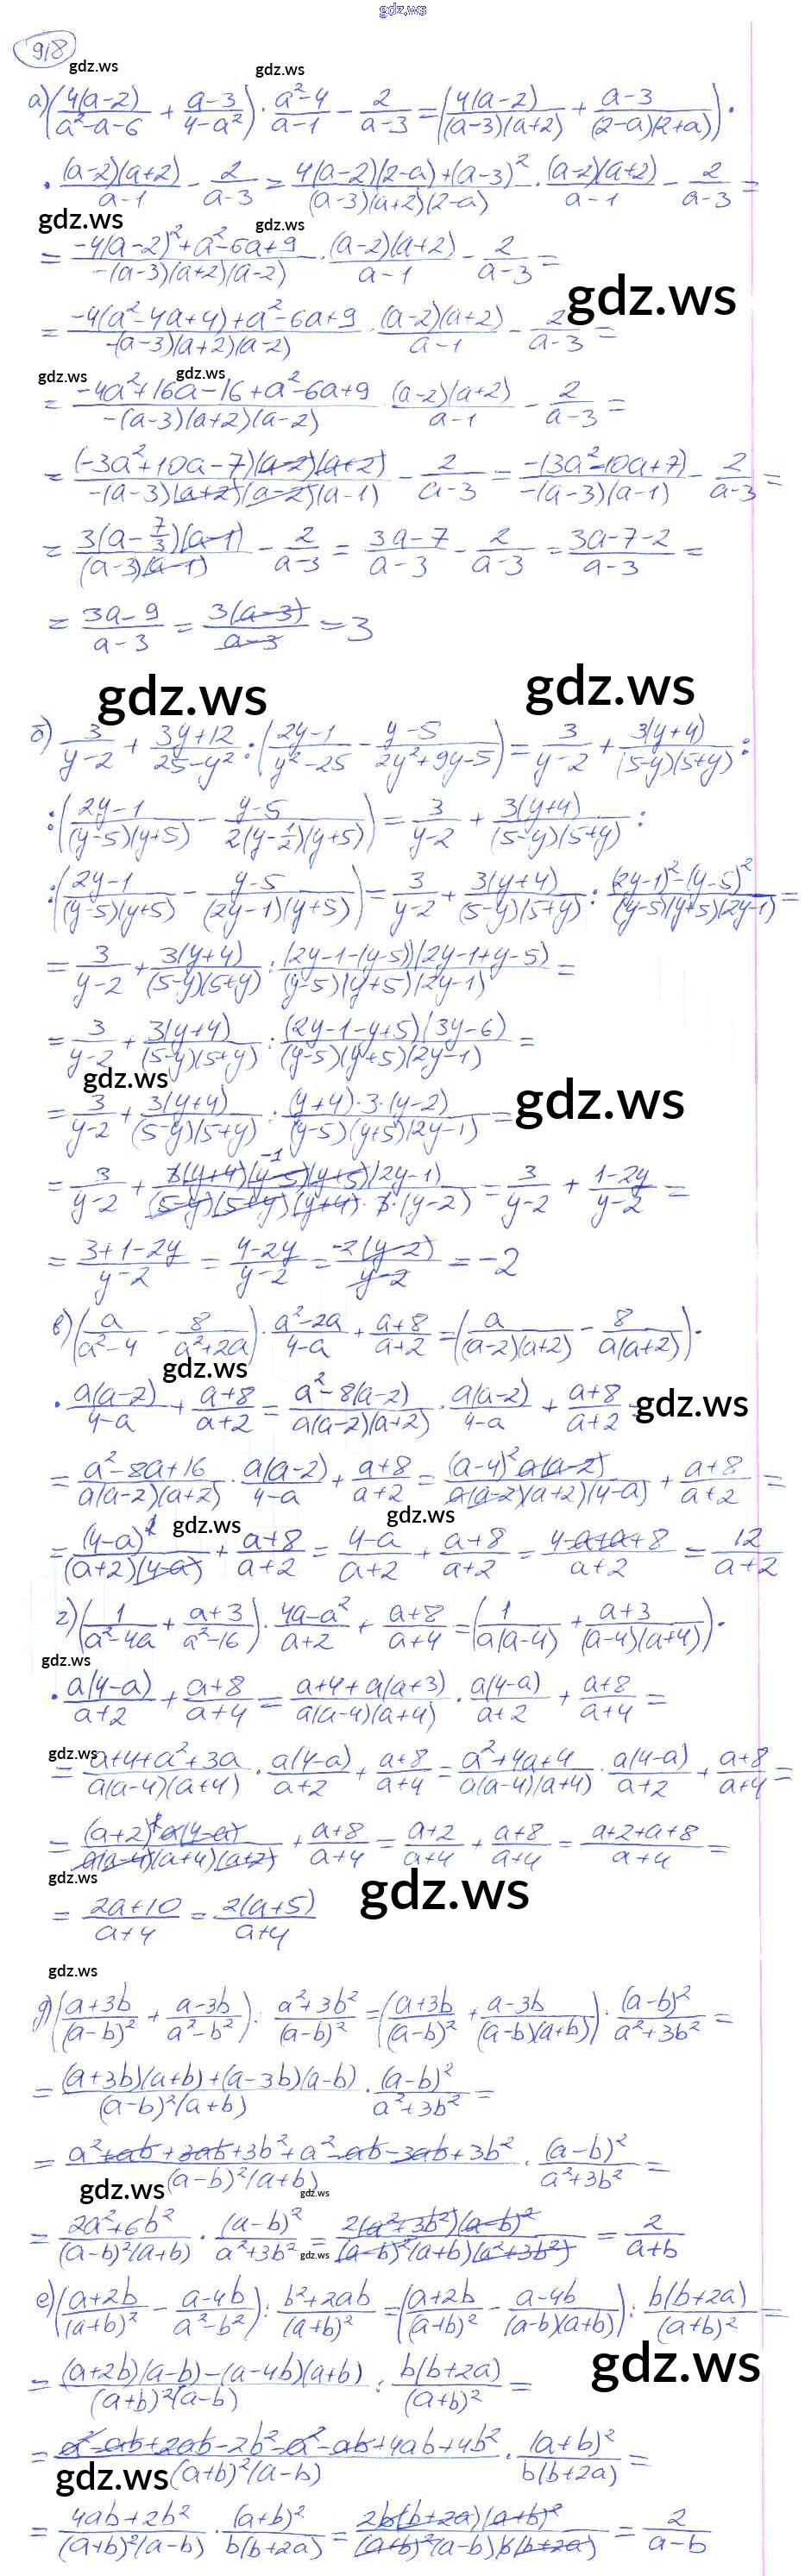 gdz.ws
918
gdz.ws gdz.ws
а) (4(a-2)/(a²-a-6) + (a-3)/(4-a²)) · (a²-4)/(a-1) - 2/(a-3) = (4(a-2)/((a-3)(a+2)) + (a-3)/((2-a)(2+a))) ·
· (a-2)(a+2)/(a-1) - 2/(a-3) = (4(a-2)(2-a)+(a-3)²)/((a-3)(a+2)(2-a)) · (a-2)(a+2)/(a-1) - 2/(a-3) =
gdz.ws gdz.ws
= (-4(a-2)²+a²-6a+9)/(-(a-3)(a+2)(a-2)) · (a-2)(a+2)/(a-1) - 2/(a-3) =
gdz.ws
= (-4(a²-4a+4)+a²-6a+9)/(-(a-3)(a+2)(a-2)) · (a-2)(a+2)/(a-1) - 2/(a-3) =
gdz.ws gdz.ws
= (-4a²+16a-16+a²-6a+9)/(-(a-3)(a+2)(a-2)) · (a-2)(a+2)/(a-1) - 2/(a-3) =
= (-3a²+10a-7)(a-2)(a+2)/(-(a-3)(a+2)(a-2)(a-1)) - 2/(a-3) = -(3a²-10a+7)/(-(a-3)(a-1)) - 2/(a-3) =
= 3(a-7/3)(a-1)/((a-3)(a-1)) - 2/(a-3) = (3a-7)/(a-3) - 2/(a-3) = (3a-7-2)/(a-3) =
= (3a-9)/(a-3) = 3(a-3)/(a-3) = 3
gdz.ws gdz.ws
б) 3/(y-2) + (3y+12)/(25-y²) : ((2y-1)/(y²-25) - (y-5)/(2y²+9y-5)) = 3/(y-2) + 3(y+4)/((5-y)(5+y)) :
: ((2y-1)/((y-5)(y+5)) - (y-5)/(2(y-1/2)(y+5))) = 3/(y-2) + 3(y+4)/((5-y)(5+y)) :
: ((2y-1)/((y-5)(y+5)) - (y-5)/((2y-1)(y+5))) = 3/(y-2) + 3(y+4)/((5-y)(5+y)) : ((2y-1)²-(y-5)²)/((y-5)(y+5)(2y-1)) =
= 3/(y-2) + 3(y+4)/((5-y)(5+y)) : (2y-1-(y-5))(2y-1+y-5)/((y-5)(y+5)(2y-1)) =
= 3/(y-2) + 3(y+4)/((5-y)(5+y)) : (2y-1-y+5)(3y-6)/((y-5)(y+5)(2y-1)) =
gdz.ws gdz.ws
= 3/(y-2) + 3(y+4)/((5-y)(5+y)) : (y+4)·3·(y-2)/((y-5)(y+5)(2y-1)) =
= 3/(y-2) + 3(y+4)(y-5)⁻¹(y+5)(2y-1)/((5-y)(5+y)(y+4)·3·(y-2)) = 3/(y-2) + (1-2y)/(y-2) =
= (3+1-2y)/(y-2) = (4-2y)/(y-2) = -2(y-2)/(y-2) = -2
в) (a/(a²-4) - 8/(a²+2a)) · (a²-2a)/(4-a) + (a+8)/(a+2) = (a/((a-2)(a+2)) - 8/(a(a+2))) ·
gdz.ws gdz.ws
· a(a-2)/(4-a) + (a+8)/(a+2) = (a²-8(a-2))/(a(a-2)(a+2)) · a(a-2)/(4-a) + (a+8)/(a+2)
= (a²-8a+16)/(a(a-2)(a+2)) · a(a-2)/(4-a) + (a+8)/(a+2) = (a-4)²a(a-2)/(a(a-2)(a+2)(4-a)) + (a+8)/(a+2) =
gdz.ws gdz.ws
= (4-a)²/((a+2)(4-a)) + (a+8)/(a+2) = (4-a)/(a+2) + (a+8)/(a+2) = (4-a+a+8)/(a+2) = 12/(a+2)
г) (1/(a²-4a) + (a+3)/(a²-16)) · (4a-a²)/(a+2) + (a+8)/(a+4) = (1/(a(a-4)) + (a+3)/((a-4)(a+4))) ·
gdz.ws
· a(4-a)/(a+2) + (a+8)/(a+4) = (a+4+a(a+3))/(a(a-4)(a+4)) · a(4-a)/(a+2) + (a+8)/(a+4) =
gdz.ws
= (a+4+a²+3a)/(a(a-4)(a+4)) · a(4-a)/(a+2) + (a+8)/(a+4) = (a²+4a+4)/(a(a-4)(a+4)) · a(4-a)/(a+2) + (a+8)/(a+4) =
= (a+2)²a(4-a)/(a(a-4)(a+4)(a+2)) + (a+8)/(a+4) = (a+2)/(a+4) + (a+8)/(a+4) = (a+2+a+8)/(a+4) =
gdz.ws gdz.ws
= (2a+10)/(a+4) = 2(a+5)/(a+4)
gdz.ws
д) ((a+3b)/(a-b)² + (a-3b)/(a²-b²)) : (a²+3b²)/(a-b)² = ((a+3b)/(a-b)² + (a-3b)/((a-b)(a+b))) · (a-b)²/(a²+3b²) =
= ((a+3b)(a+b)+(a-3b)(a-b))/((a-b)²(a+b)) · (a-b)²/(a²+3b²) =
= (a²+ab+3ab+3b²+a²-ab-3ab+3b²)/((a-b)²(a+b)) · (a-b)²/(a²+3b²) =
gdz.ws gdz.ws
= (2a²+6b²)/((a-b)²(a+b)) · (a-b)²/(a²+3b²) = 2(a²+3b²)(a-b)²/((a-b)²(a+b)(a²+3b²)) = 2/(a+b)
gdz.ws
е) ((a+2b)/(a+b)² - (a-4b)/(a²-b²)) : (b²+2ab)/(a+b)² = ((a+2b)/(a+b)² - (a-4b)/((a-b)(a+b))) : b(b+2a)/(a+b)² =
gdz.ws
= ((a+2b)(a-b)-(a-4b)(a+b))/((a+b)²(a-b)) : b(b+2a)/(a+b)² =
= (a²-ab+2ab-2b²-a²-ab+4ab+4b²)/((a+b)²(a-b)) · (a+b)²/(b(b+2a)) =
gdz.ws
= (4ab+2b²)/((a+b)²(a-b)) · (a+b)²/(b(b+2a)) = 2b(b+2a)(a+b)²/((a+b)²(a-b)b(b+2a)) = 2/(a-b)